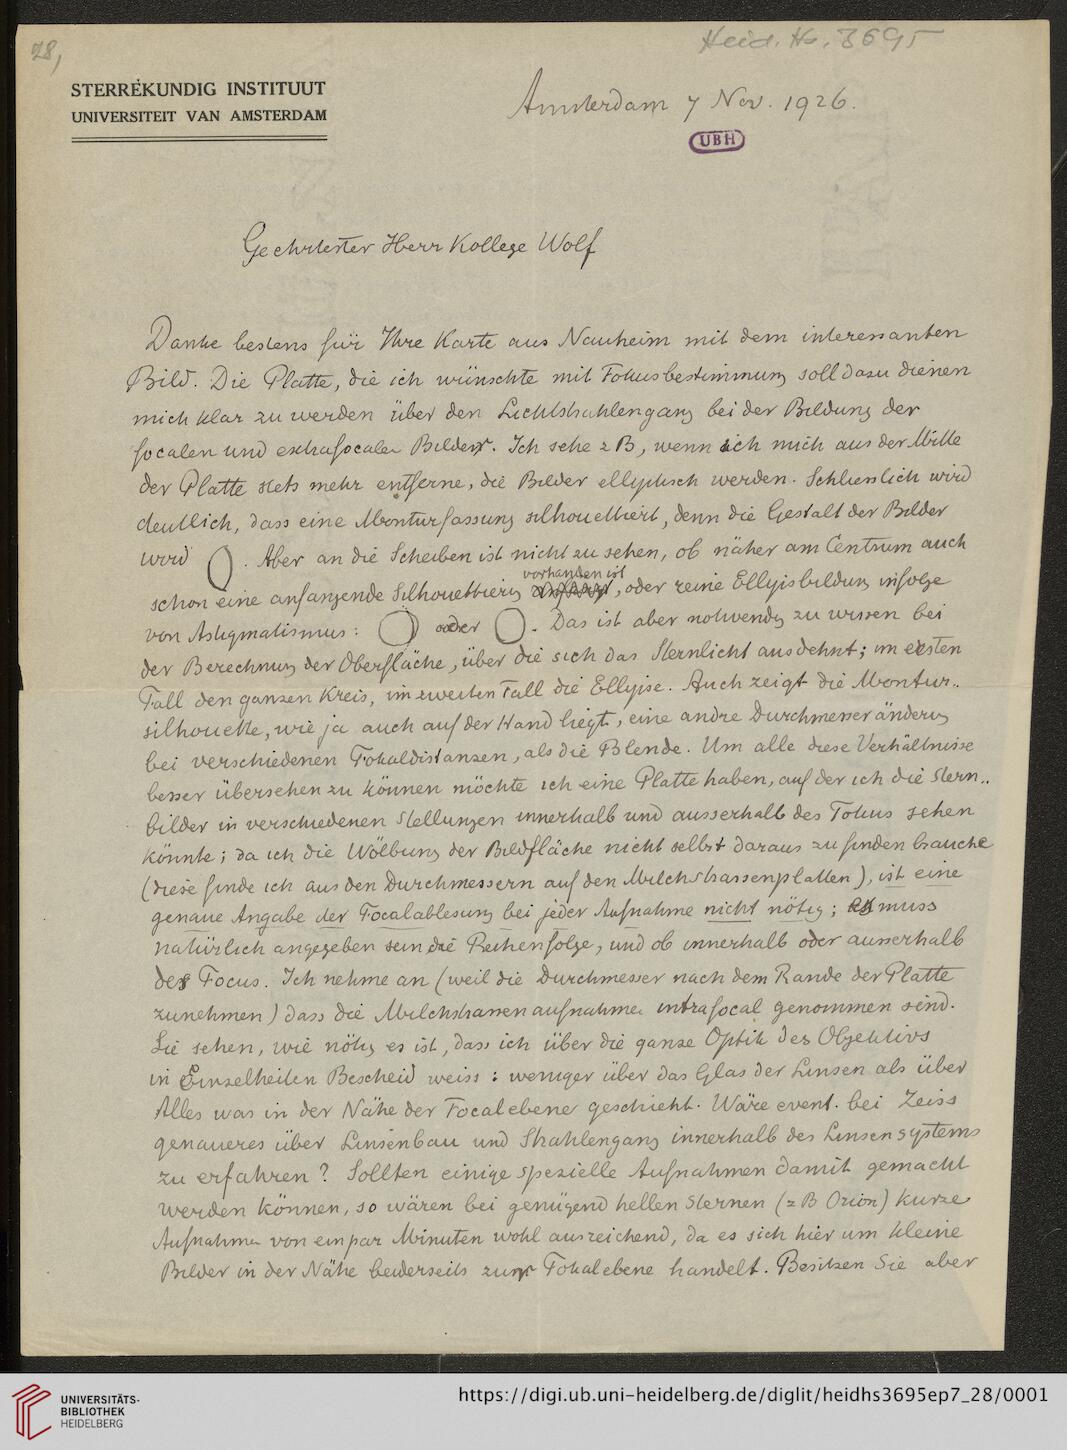 28,
Heid. Hs. 3695
STERREKUNDIG INSTITUUT
UNIVERSITEIT VAN AMSTERDAM
Amsterdam 7 Nov. 1926.
UBH
Geehrtester Herr Kollege Wolf
Danke bestens für Ihre Karte aus Nauheim mit dem interessanten
Bild. Die Platte, die ich wünschte mit Fokusbestimmung soll dazu dienen
mich klar zu werden über den Lichtstrahlengang bei der Bildung der
focalen und extrafocalen Bilder. Ich sehe z B, wenn ich mich aus der Mitte
der Platte stets mehr entferne, die Bilder elliptisch werden. Schliesslich wird
deutlich, dass eine Monturfassung silhouettiert, denn die Gestalt der Bilder
wird . Aber an die Scheiben ist nicht zu sehen, ob näher am Centrum auch
vorhanden ist
schon eine anfangende Silhouettierung , oder reine Ellipsbildung infolge
von Astigmatismus: oder . Das ist aber notwendig zu wissen bei
der Berechnung der Oberfläche, über die sich das Sternlicht ausdehnt; im ersten
Fall den ganzen Kreis, im zweiten Fall die Ellipse. Auch zeigt die Montur..
silhouette, wie ja auch auf der Hand liegt, eine andre Durchmesseränderung
bei verschiedenen Fokaldistanzen, als die Blende. Um alle diese Verhältnisse
besser übersehen zu können möchte ich eine Platte haben, auf der ich die Stern..
bilder in verschiedenen Stellungen innerhalb und ausserhalb des Fokus sehen
könnte; da ich die Wölbung der Bildfläche nicht selbst daraus zu finden brauche
(diese finde ich aus den Durchmessern auf den Milchstrassenplatten), ist eine
genaue Angabe der Focalablesung bei jeder Aufnahme nicht nötig; es muss
natürlich angegeben sein die Reihenfolge, und ob innerhalb oder ausserhalb
des Focus. Ich nehme an (weil die Durchmesser nach dem Rande der Platte
zunehmen) dass die Milchstrassenaufnahmen intrafocal genommen sind.
Sie sehen, wie nötig es ist, dass ich über die ganze Optik des Objektivs
in Einzelheiten Bescheid weiss: weniger über das Glas der Linsen als über
Alles was in der Nähe der Focalebene geschieht. Wäre event. bei Zeiss
genaueres über Linsenbau und Strahlengang innerhalb des Linsensystems
zu erfahren? Sollten einige spezielle Aufnahmen damit gemacht
werden können, so wären bei genügend hellen Sternen (z B Orion) kurze
Aufnahmen von ein par Minuten wohl ausreichend, da es sich hier um kleine
Bilder in der Nähe beiderseits zur Fokalebene handelt. Besitzen Sie aber
UNIVERSITÄTS-
BIBLIOTHEK
HEIDELBERG
https://digi.ub.uni-heidelberg.de/diglit/heidhs3695ep7_28/0001